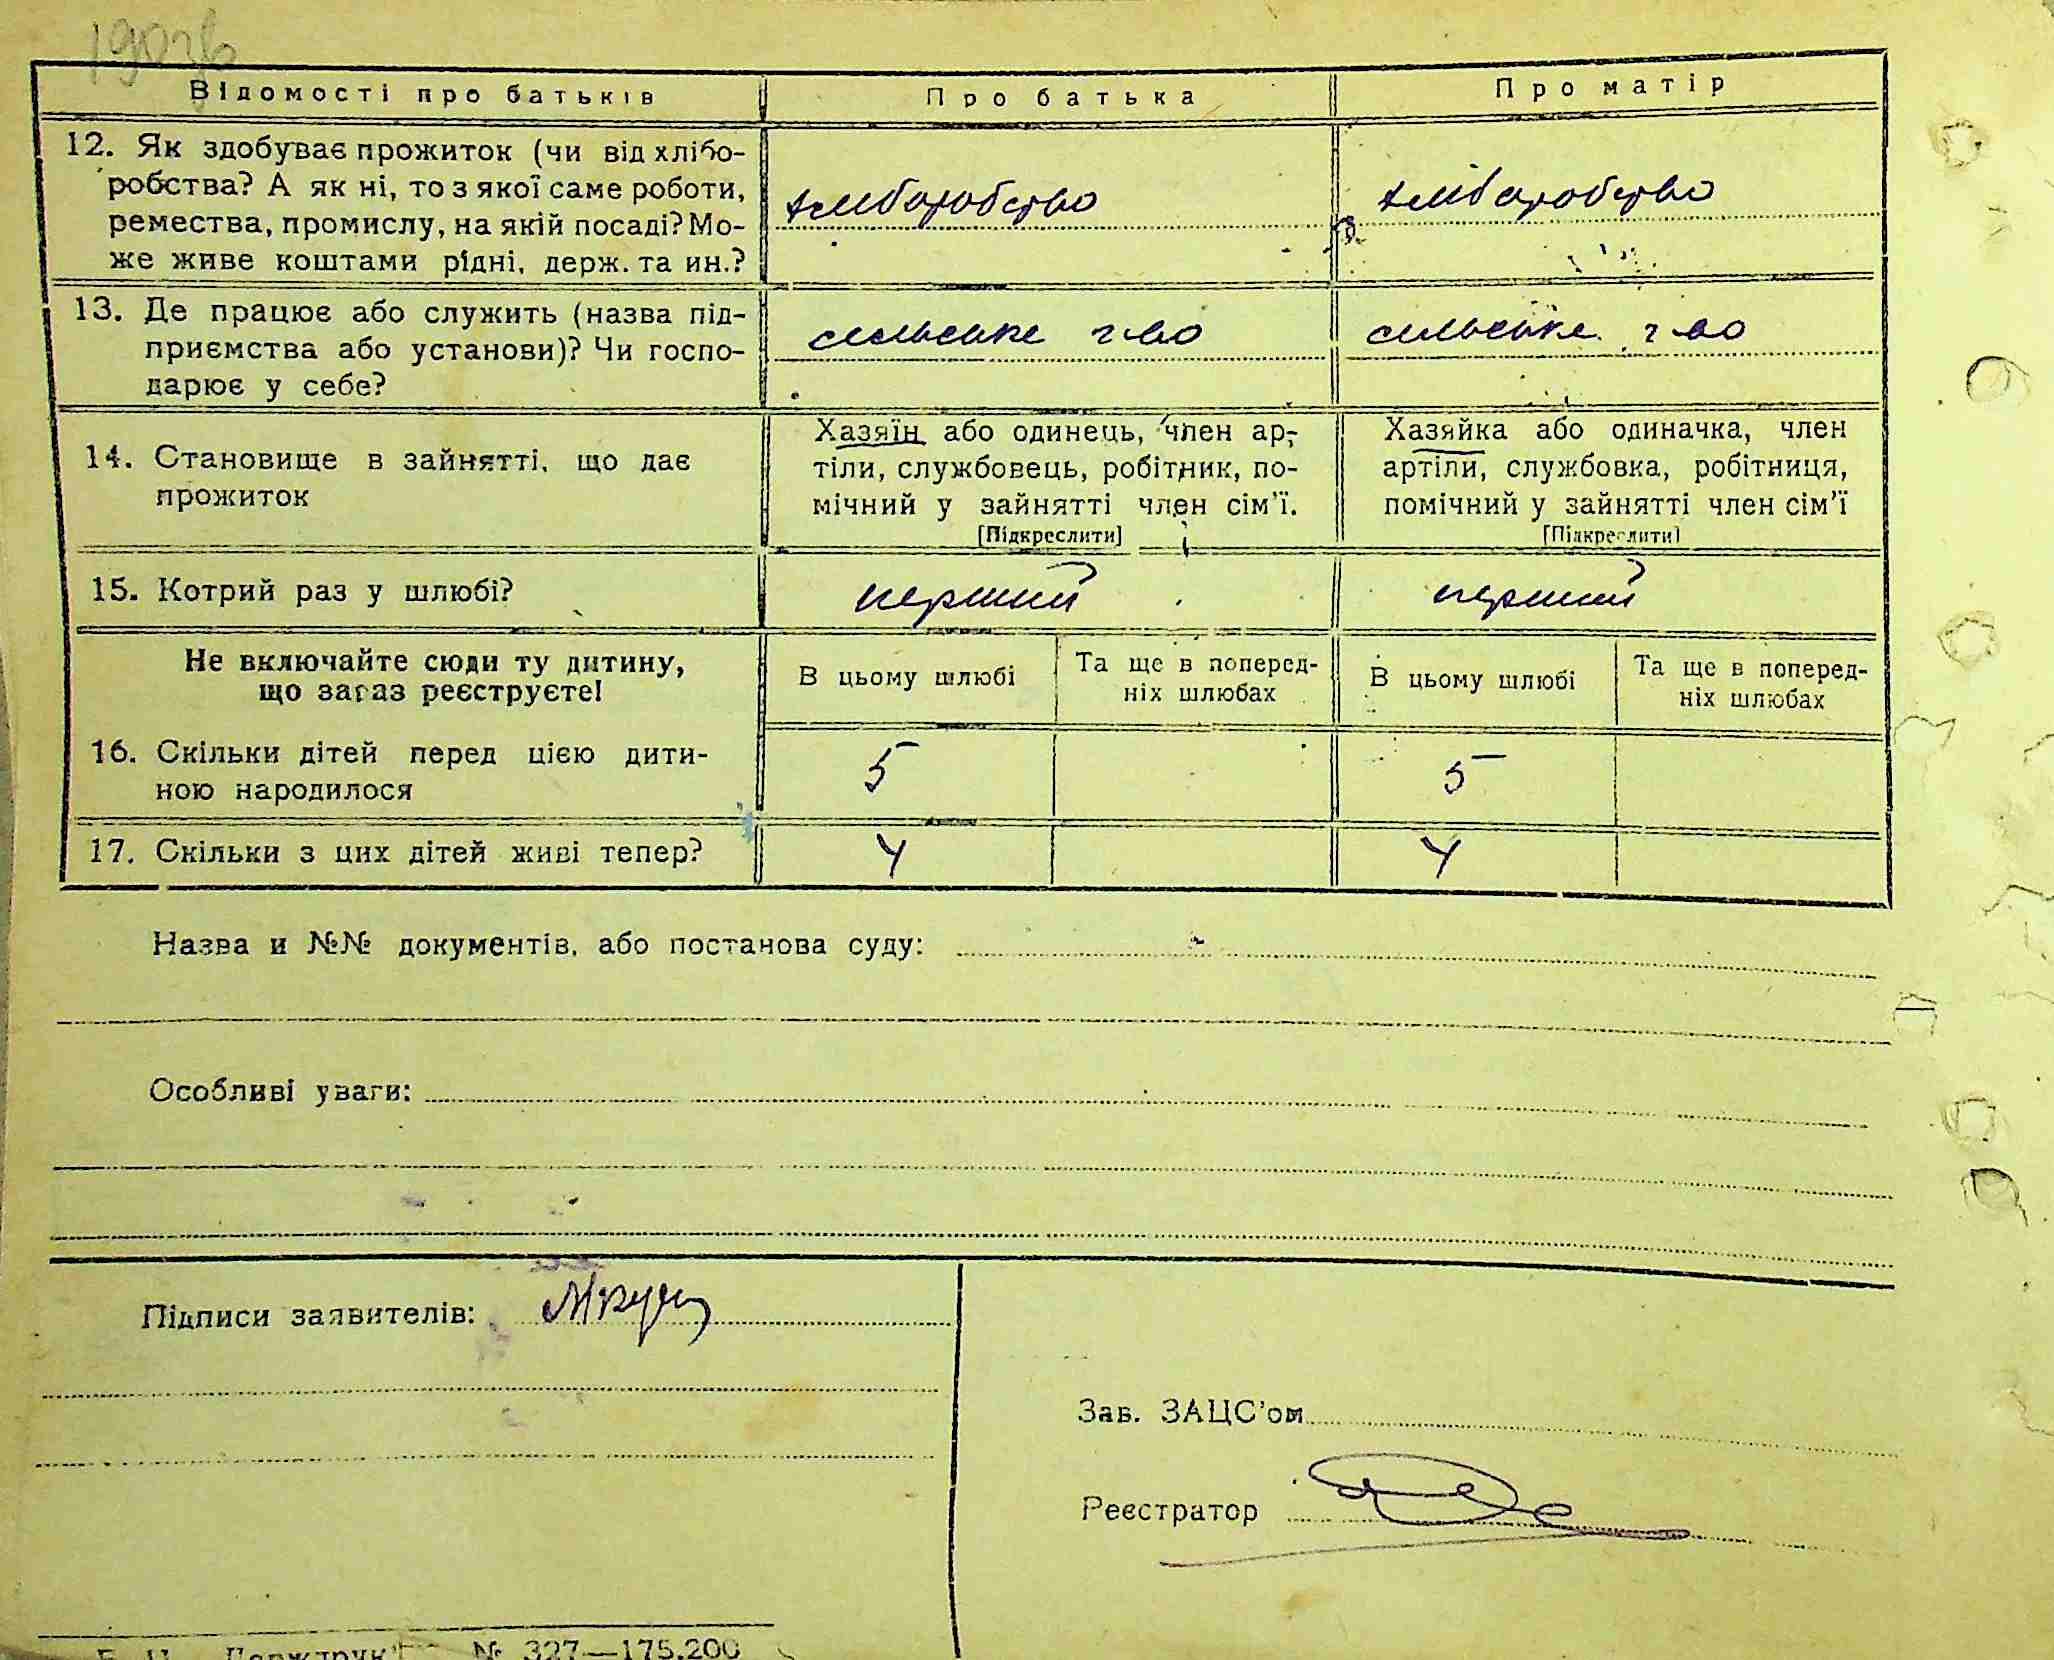 Відомості про батьків
Про батька
Про матір
12. Як здобуває прожиток (чи від хлібо-
робства? А як ні, то з якої саме роботи,
ремества, промислу, на якій посаді? Мо-
же живе коштами рідні, держ. та ин.?
хліборобство
хліборобство
13. Де працює або служить (назва під-
приємства або установи)? Чи госпо-
дарює у себе?
сельське г-во
сельське г-во
14. Становище в зайнятті, що дає
прожиток
Хазяїн або одинець, член ар-
тіли, службовець, робітник, по-
мічний у зайнятті член сім'ї.
[Підкреслити]
Хазяйка або одиначка, член
артіли, службовка, робітниця,
помічний у зайнятті член сім'ї
[Підкреслити]
15. Котрий раз у шлюбі?
перший
перший
Не включайте сюди ту дитину,
що зараз реєструєте!
В цьому шлюбі
Та ще в поперед-
ніх шлюбах
В цьому шлюбі
Та ще в поперед-
ніх шлюбах
16. Скільки дітей перед цією дити-
ною народилося
5
5
17. Скільки з цих дітей живі тепер?
4
4
Назва и №№ документів, або постанова суду:
Особливі уваги:
Підписи заявителів:
Зав. ЗАЦС'ом
Реєстратор
№ 327—175.200